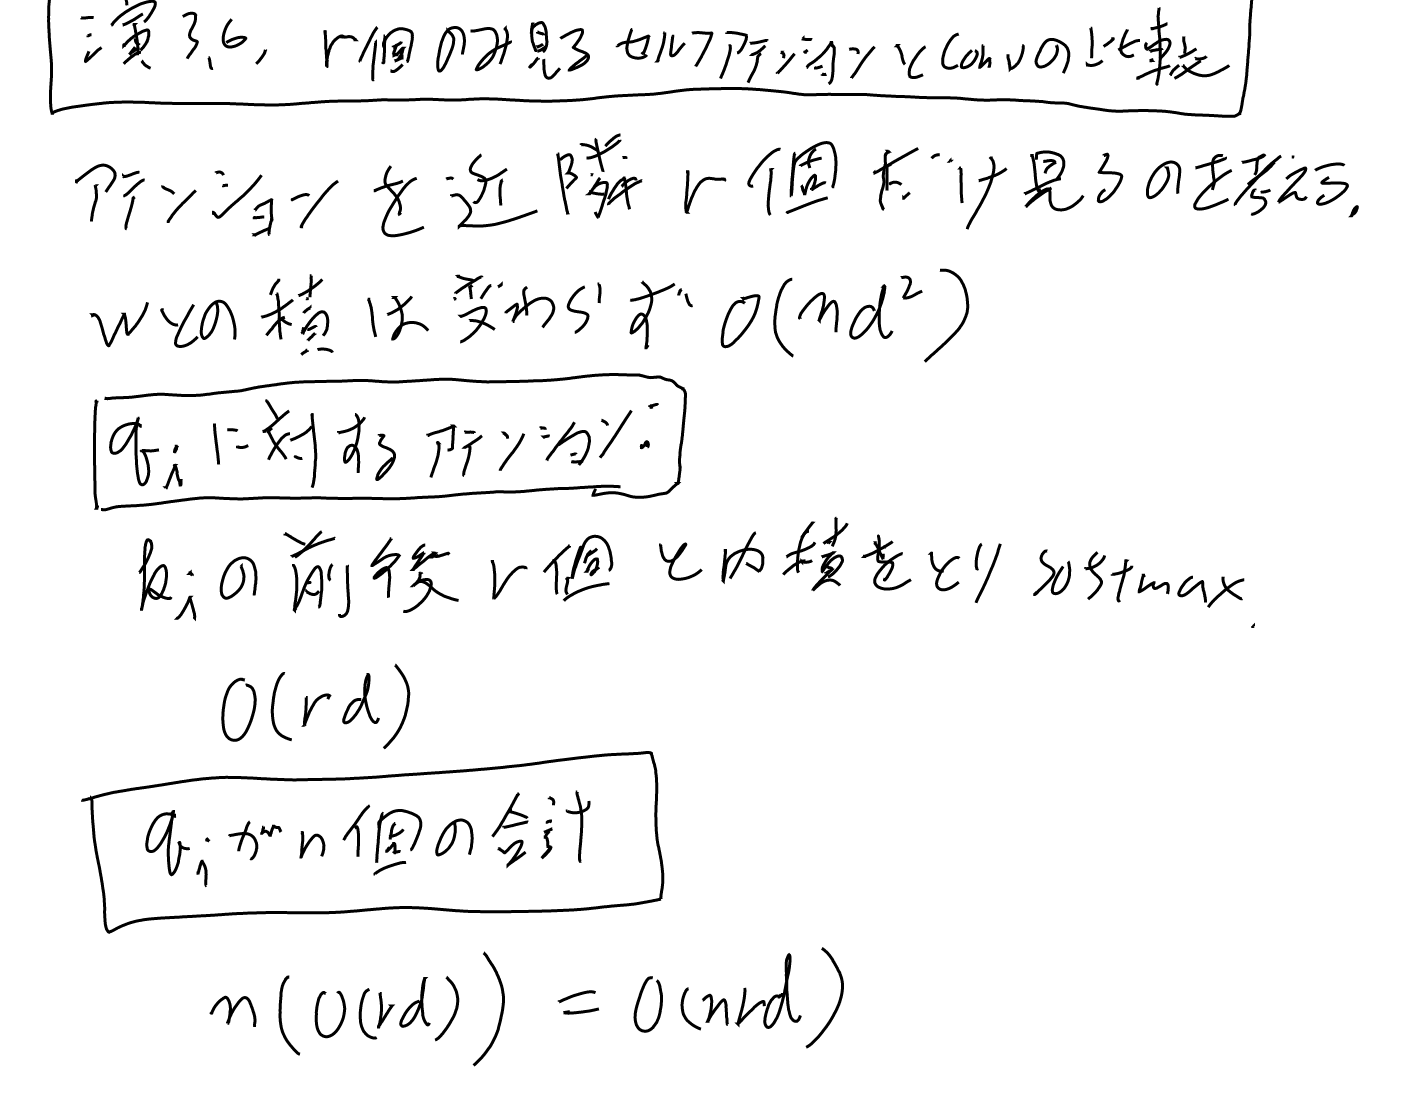 演3.6. r個のみ見るセルフアテンションとConvの比較
アテンションを近隣r個だけ見るのを考える.
Wとの積は変わらずO(nd²)
qᵢに対するアテンション:
kᵢの前後r個と内積をとりsoftmax.
O(rd)
qᵢがn個の合計
n(O(rd)) = O(nrd)